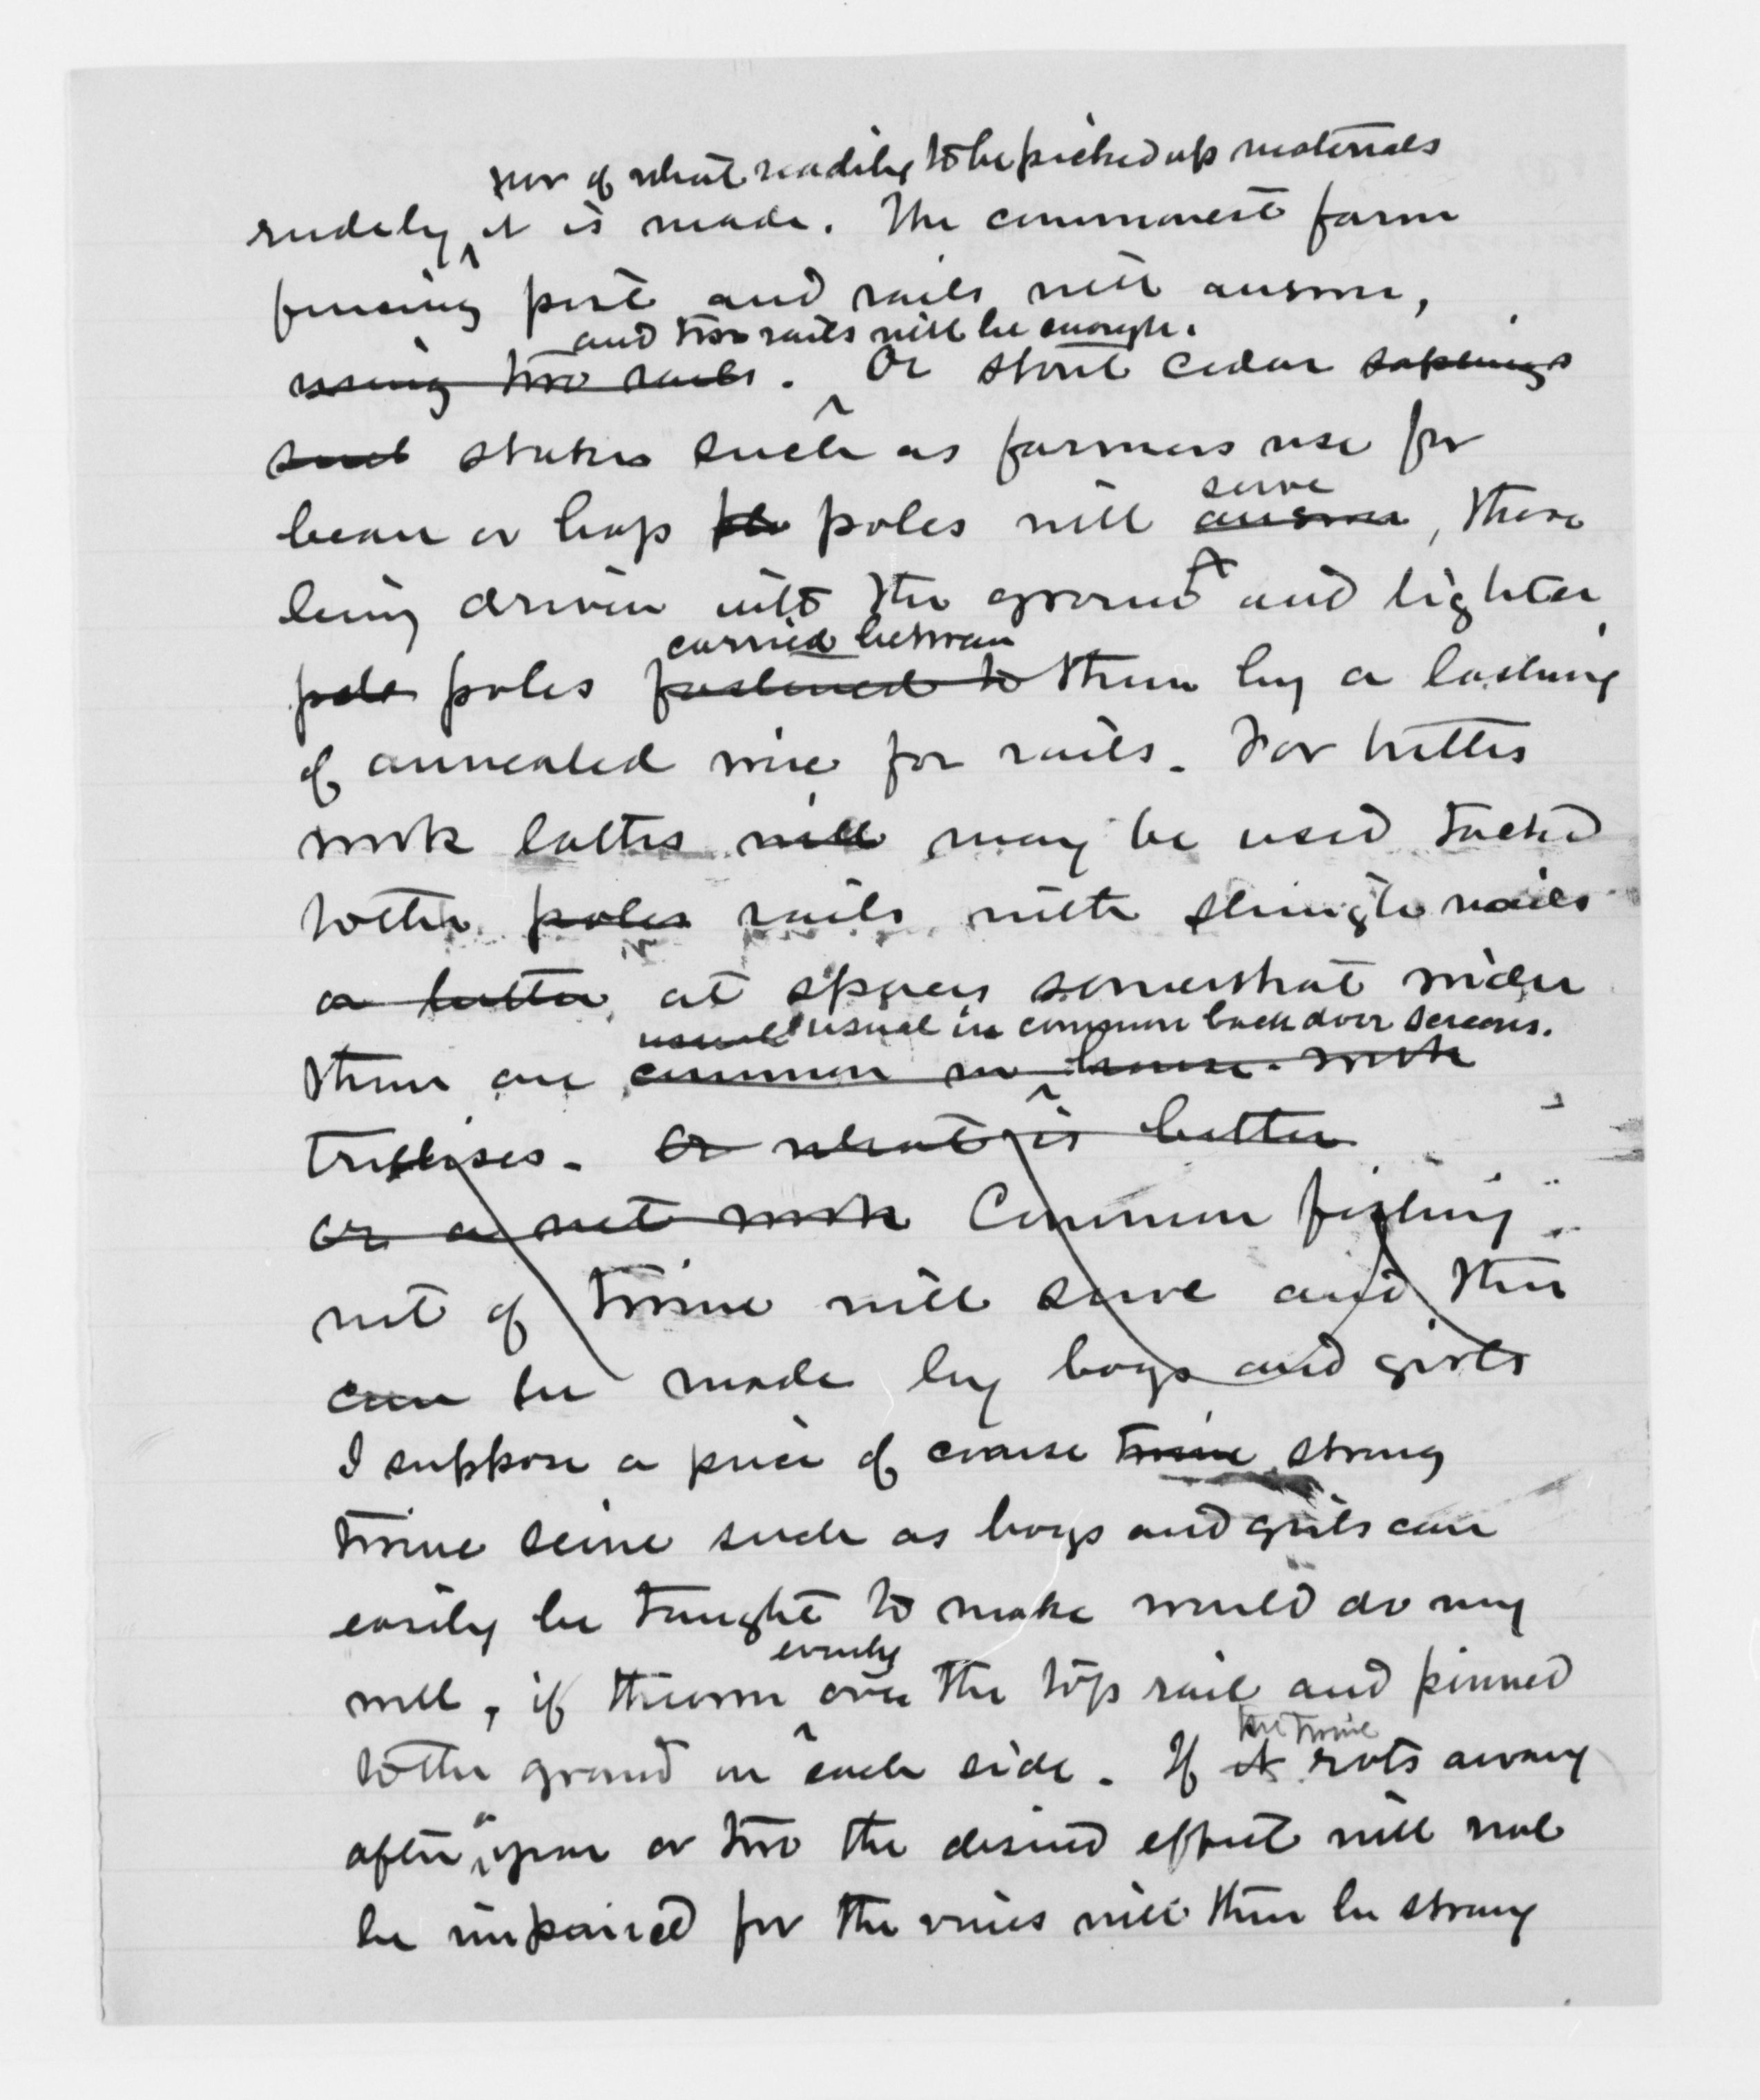 nor of what readily to be picked up materials
rudely it is made. The commonest farm
fencing post and rails will answer,
and two rails will be enough.
using two rails. Or stout cedar saplings
such stakes such as farmers use for
serve
bean or hop po poles will answer, these
being driven into the ground and lighter
carried between
pole poles fastened to them by a lashing
of annealed wire for rails. For better
work laths will may be used tacked
to the poles rails with shingle nails
or better at spaces somewhat wider
usual usual in common back door screens.
than are common in house-work
trellises. Or what is better
or a net work Common fishing
net of twine will serve and this
can be made by boys and girls
I suppose a piece of coarse twine strong
twine seine such as boys and girls can
easily be taught to make would do very
evenly
well, if thrown over the top rail and pinned
the twine
to the ground on each side. If it rots away
after a year or two the desired effect will not
be impaired for the vines will then be strong